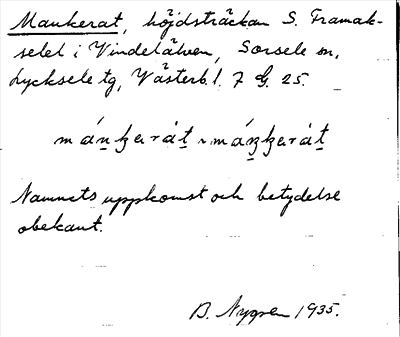 Mankerat, höjdsträckan S. Framak-
selet i Vindelälven, Sorsele sn,
Lycksele tg, Västerb. l. 7 G. 25.
mánkerát ~ mánkerát
Namnets uppkomst och betydelse
obekant.
B. Nygren 1935.